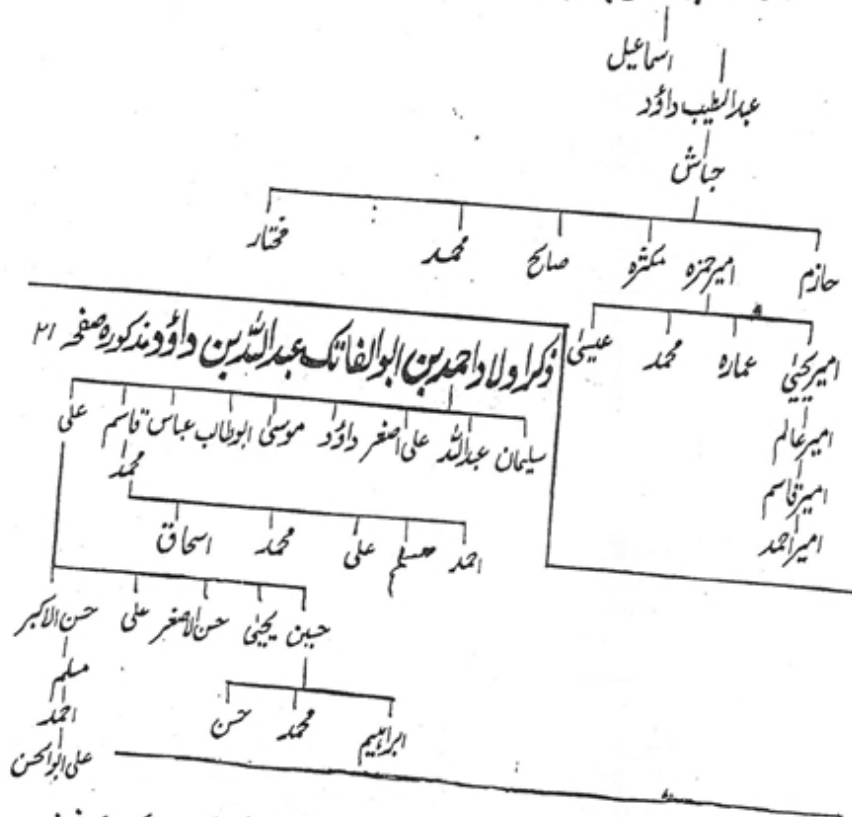 اسماعیل
عبدالطیب داؤد
جباش
حازم امیر حمزہ مکثرہ صالح محمد مختار
امیر یحییٰ عمارہ محمد عیسیٰ
امیر عالم
امیر قاسم
امیر احمد
ذکر اولاد احمد بن ابوالفاتک عبداللہ بن داؤد مذکورہ صفحہ ۲۱
سلیمان عبداللہ علی اصغر داؤد موسیٰ ابوطالب عباس قاسم علی
محمد
احمد مسلم علی محمد اسحاق
حسین یحییٰ حسن الاصغر علی حسن الاکبر
مسلم
احمد
علی ابوالحسن
ابراہیم محمد حسن